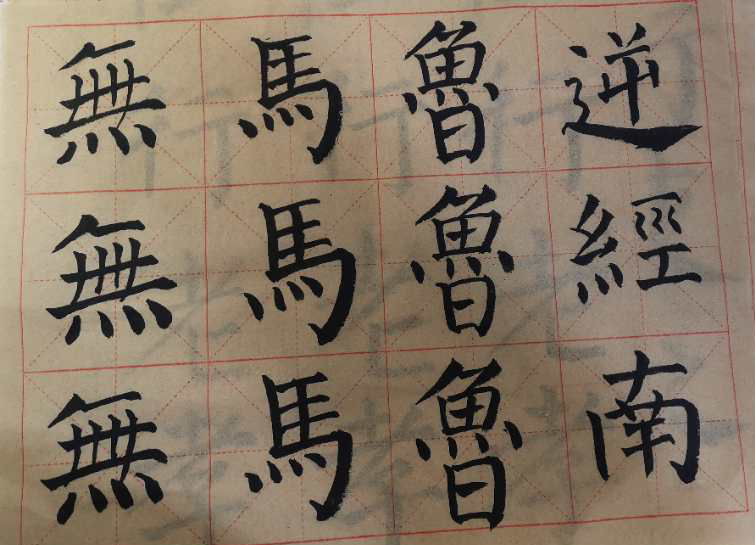 逆經南
魯魯魯
馬馬馬
無無無